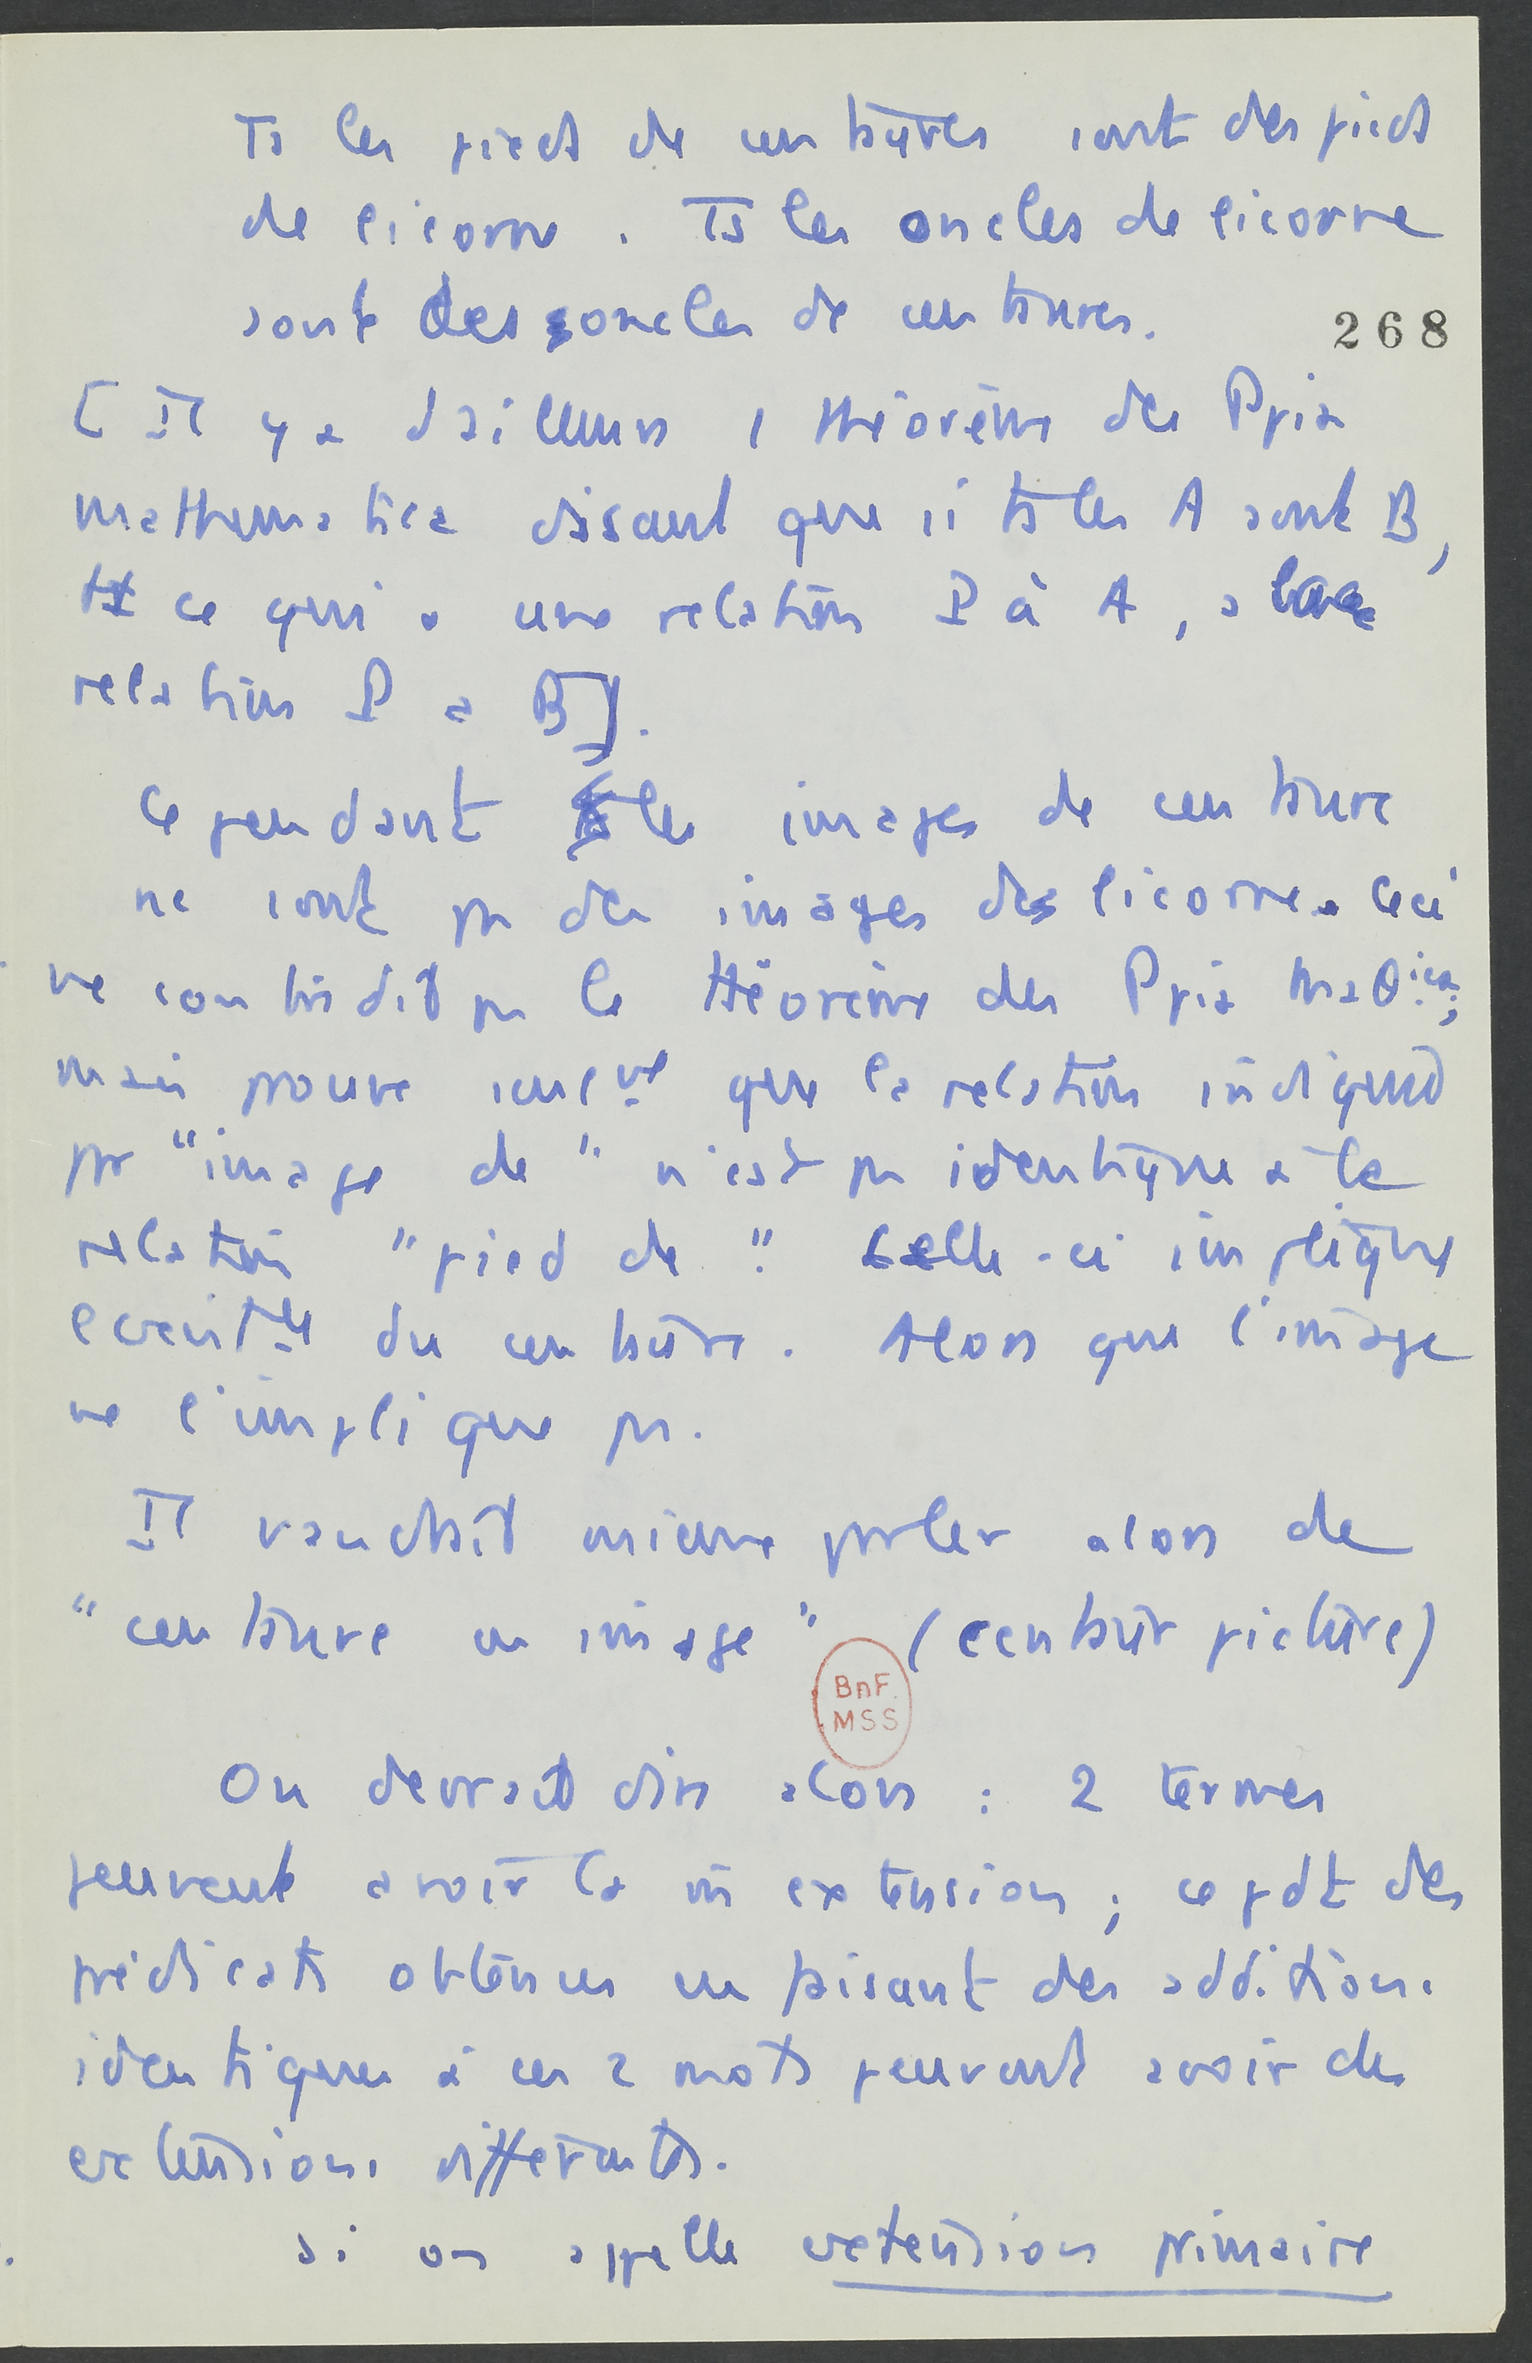 Ts les pieds de centaures sont des pieds
de licorne. Ts les oncles de licorne
sont des oncles de centaures.
268
[Il y a d'ailleurs 1 théorème des Ppia
mathematica disant que si ts les A sont B,
tt ce qui a une relation P à A, a la
relation P a B].
Cependant les images de centaure
ne sont pas des images de licorne. Ceci
ne contredit pas le théorème des Ppia Maθica;
mais prouve seulmt que la relation indiquée
par "image de" n'est pas identique a la
relation "pied de". Celle-ci implique
du centaure. Alors que l'image
ne l'implique pas.
Il vaudrait mieux parler alors de
"centaure en image" (centaur picture)
BnF
MSS
On devrait dire alors : 2 termes
peuvent avoir la m̄ extension ; cepdt des
prédicats obtenus en faisant des additions
identiques à ces 2 mots peuvent avoir des
extensions différentes.
Si on appelle extension primaire